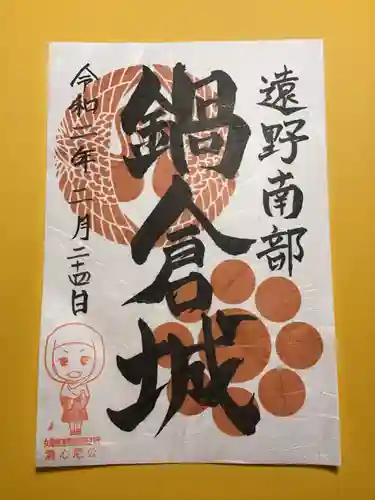 遠野南部
鍋倉城
令和二年二月二十四日
公尼心清